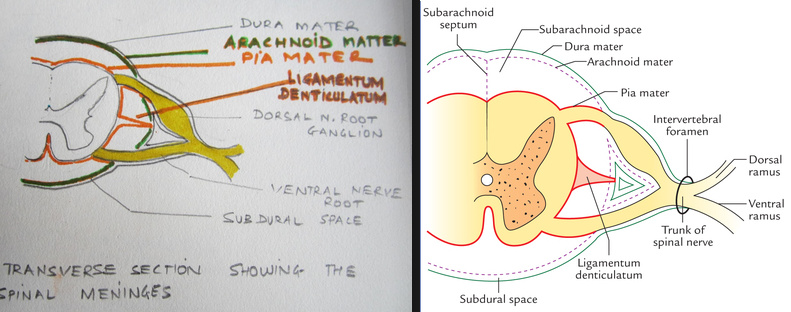 DURA MATER
ARACHNOID MATTER
PIA MATER
LIGAMENTUM
DENTICULATUM
DORSAL N. ROOT
GANGLION
VENTRAL NERVE
ROOT
SUBDURAL SPACE
TRANSVERSE SECTION SHOWING THE
SPINAL MENINGES
Subarachnoid
septum
Subarachnoid space
Dura mater
Arachnoid mater
Pia mater
Intervertebral
foramen
Dorsal
ramus
Ventral
ramus
Trunk of
spinal nerve
Ligamentum
denticulatum
Subdural space